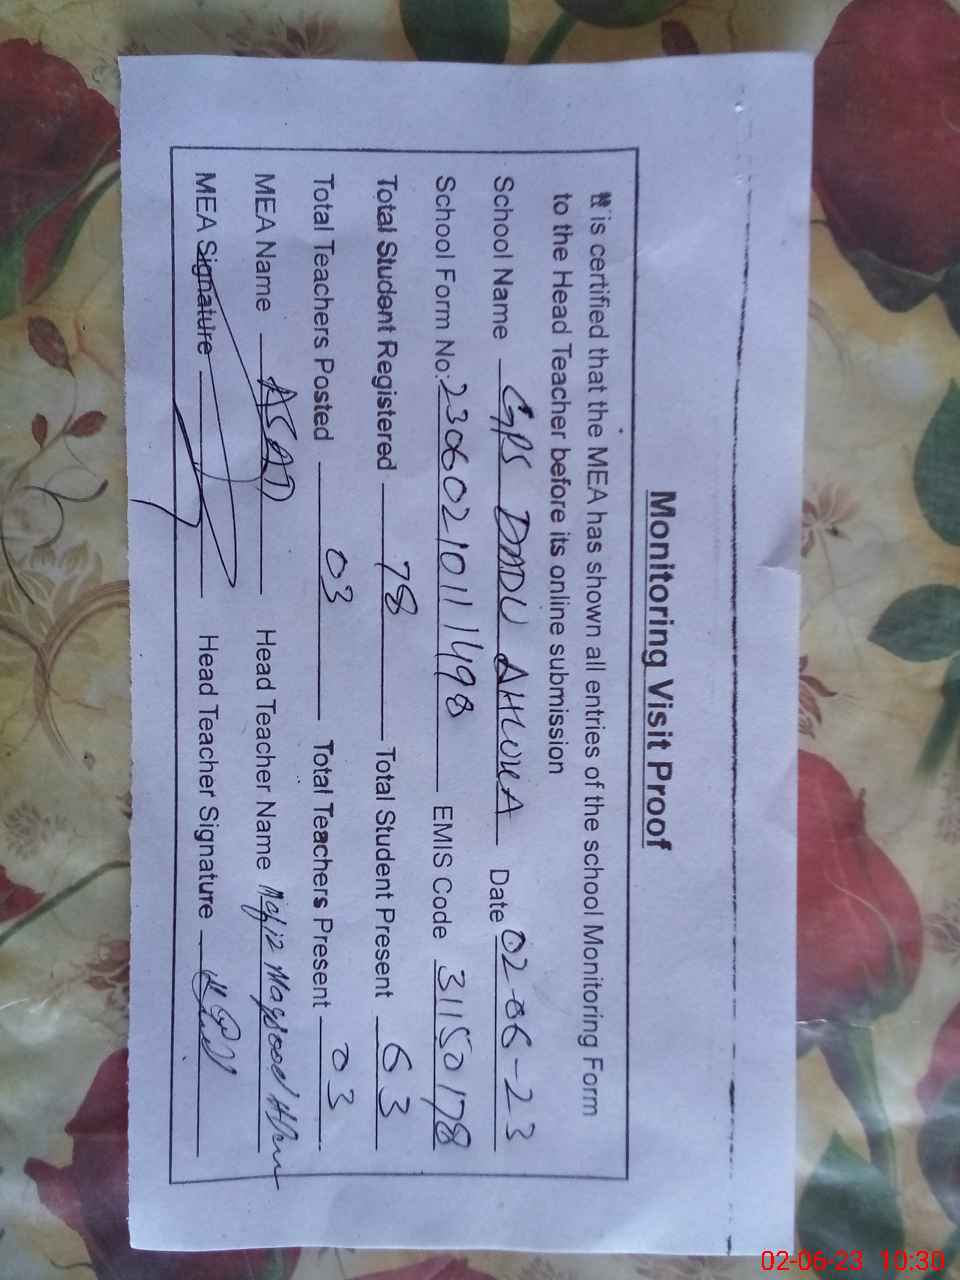 Monitoring Visit Proof
It is certified that the MEA has shown all entries of the school Monitoring Form
to the Head Teacher before its online submission
School Name GPS DADU Date 02-06-23
School Form No: 2306021011498 EMIS Code 31150178
Total Student Registered 78 Total Student Present 63
Total Teachers Posted 03 Total Teachers Present 03
MEA Name ASAD Head Teacher Name Maqsood
MEA Signature Head Teacher Signature
02-06-23 10:30